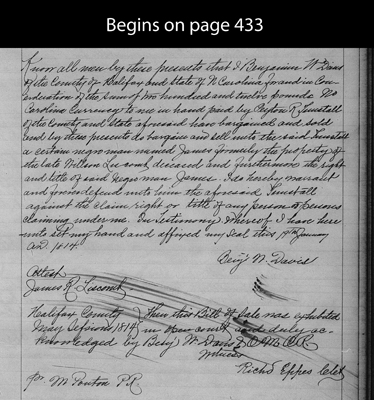 Begins on page 433
Know all men by these presents that I Benjamin W Davis
of the County of Halifax and State of N Carolina for and in Con
sideration of the sum of two hundred and twelve pounds No
Carolina Currency to me in hand paid by Peyton R. Tunstall
of the County and State aforesaid have bargained and sold
and by these presents do bargain and sell unto the said Tunstall
a certain negro man named James formerly the property of
the late Wilson deceased and furthermore the right
and title of said Negro man James. I do hereby warrant
and forever defend unto him the aforesaid Tunstall
against the claim right or title of any person or persons
claiming under me. In Testimony whereof I have here
unto set my hand and affixed my seal this January
AD. 1814.
Benj W. Davis
Attest
James R. Liscomb
Halifax County Then this Bill of Sale was exhibited
May Sessions 1814 in open court and duly ac
knowledged by Benj W Davis & O. M. C. R.
Witness
Richd Eppes Clek
pr. M. Ponton P.R.